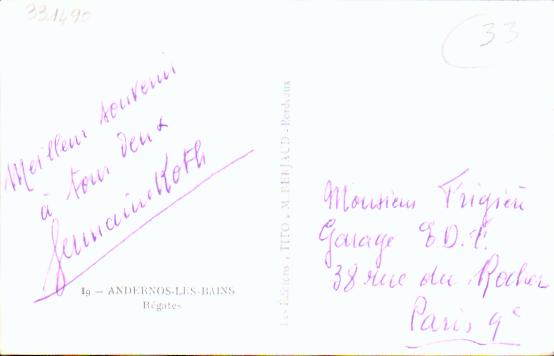 33.1490
33
Meilleur souvenir
à tous deux
Germaine Roth
19 — ANDERNOS-LES-BAINS
Régates
Les Éditions, TITO, M. BERJAUD - Bordeaux
Monsieur
Garage E.D.F.
38 rue du Rocher
Paris 9e